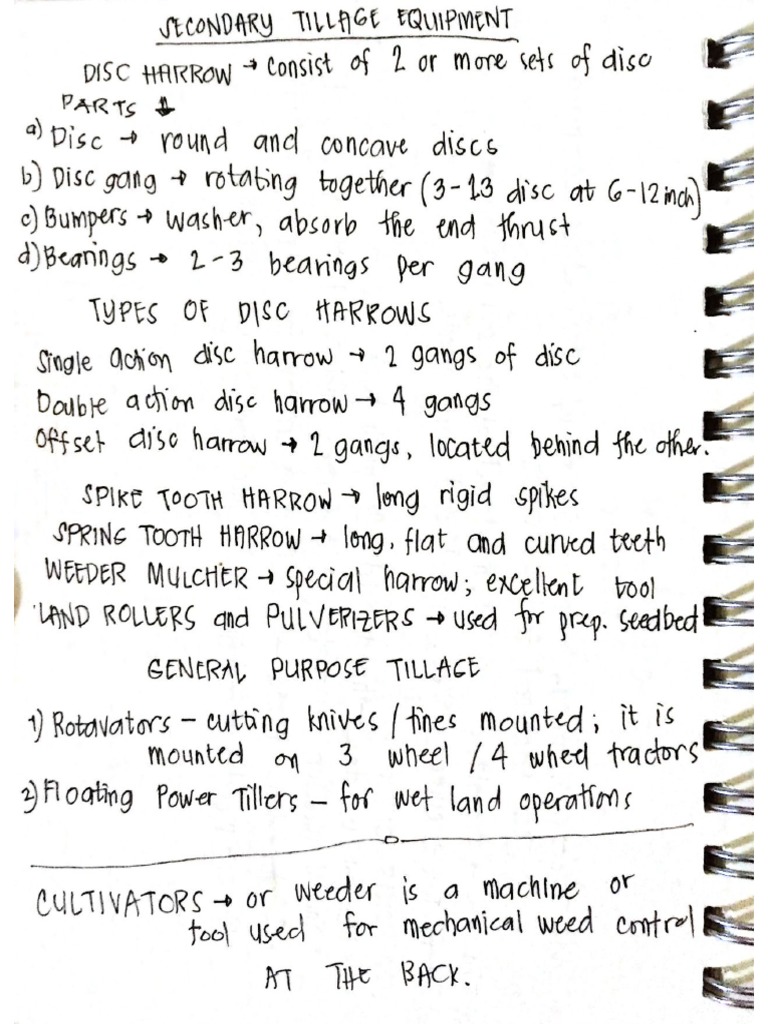 SECONDARY TILLAGE EQUIPMENT
DISC HARROW → consist of 2 or more sets of disc
PARTS ↓
a) Disc → round and concave discs
b) Disc gang → rotating together (3-13 disc at 6-12 inch)
c) Bumpers → washer, absorb the end thrust
d) Bearings → 2-3 bearings per gang
TYPES OF DISC HARROWS
Single action disc harrow → 2 gangs of disc
Double action disc harrow → 4 gangs
Offset disc harrow → 2 gangs, located behind the other.
SPIKE TOOTH HARROW → long rigid spikes
SPRING TOOTH HARROW → long, flat and curved teeth
WEEDER MULCHER → special harrow; excellent tool
LAND ROLLERS and PULVERIZERS → used for prep. seedbed
GENERAL PURPOSE TILLAGE
1) Rotavators - cutting knives / tines mounted; it is
mounted on 3 wheel / 4 wheel tractors
2) Floating Power Tillers - for wet land operations
CULTIVATORS → or weeder is a machine or
tool used for mechanical weed control
AT THE BACK.